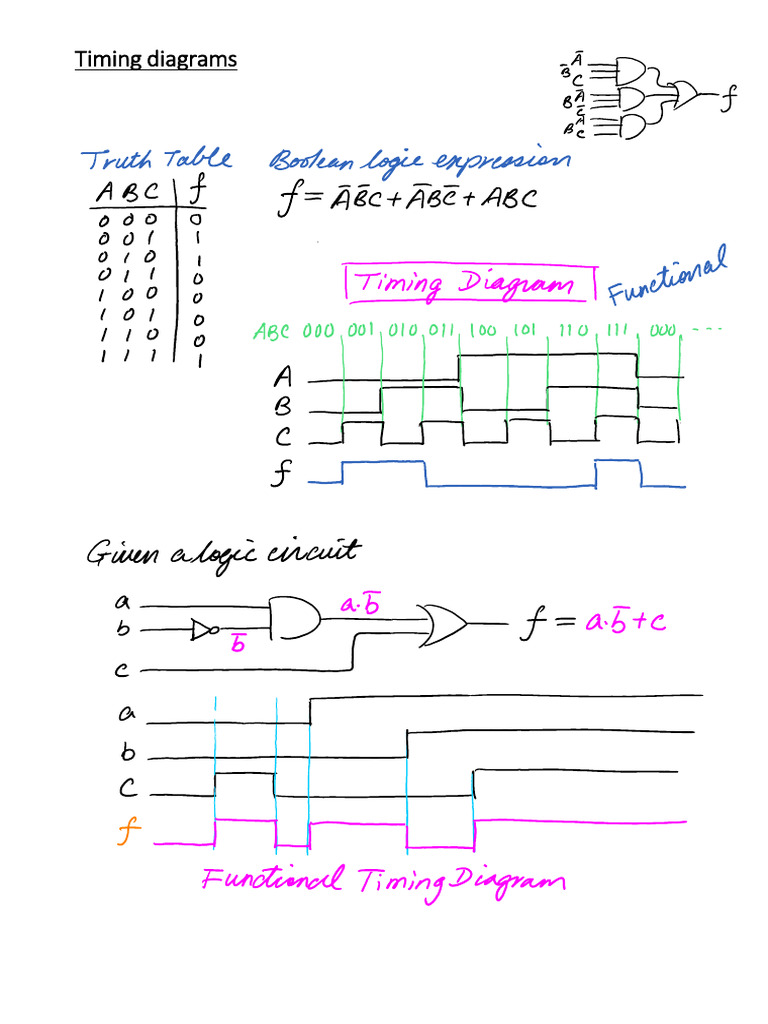 Timing diagrams
Ā
B̄
C
B Ā
C̄
f
Ā
B C
Truth Table
Boolean logic expression
A B C f
f = ĀB̄C + ĀBC̄ + ABC
0 0 0 0
0 0 1 1
0 1 0 1
0 1 1 0
1 0 0 0
1 0 1 0
1 1 0 0
1 1 1 1
Timing Diagram
Functional
ABC 000 001 010 011 100 101 110 111 000 ---
A
B
C
f
Given a logic circuit
a
b
b̄
a·b̄
f = a·b̄+c
c
a
b
C
f
Functional Timing Diagram